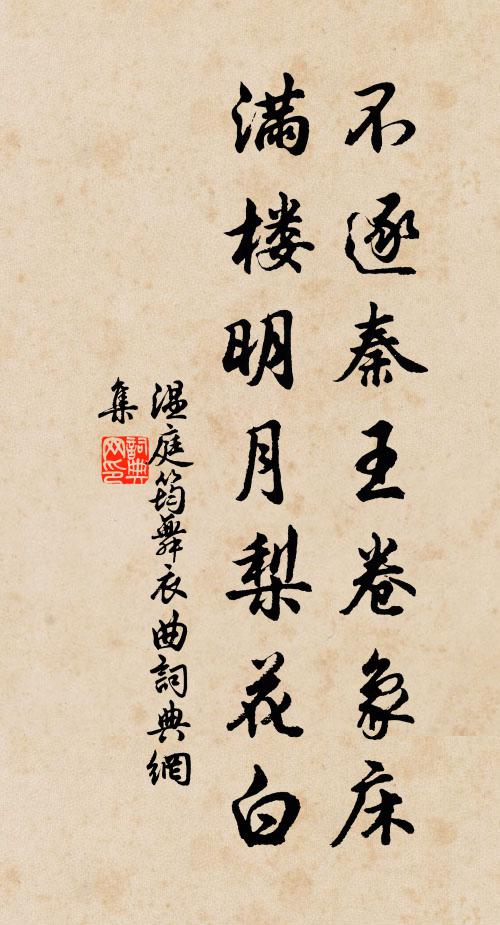 不逐秦王卷象床
满楼明月梨花白
温庭筠舞衣曲詞典網
集
詞典網印